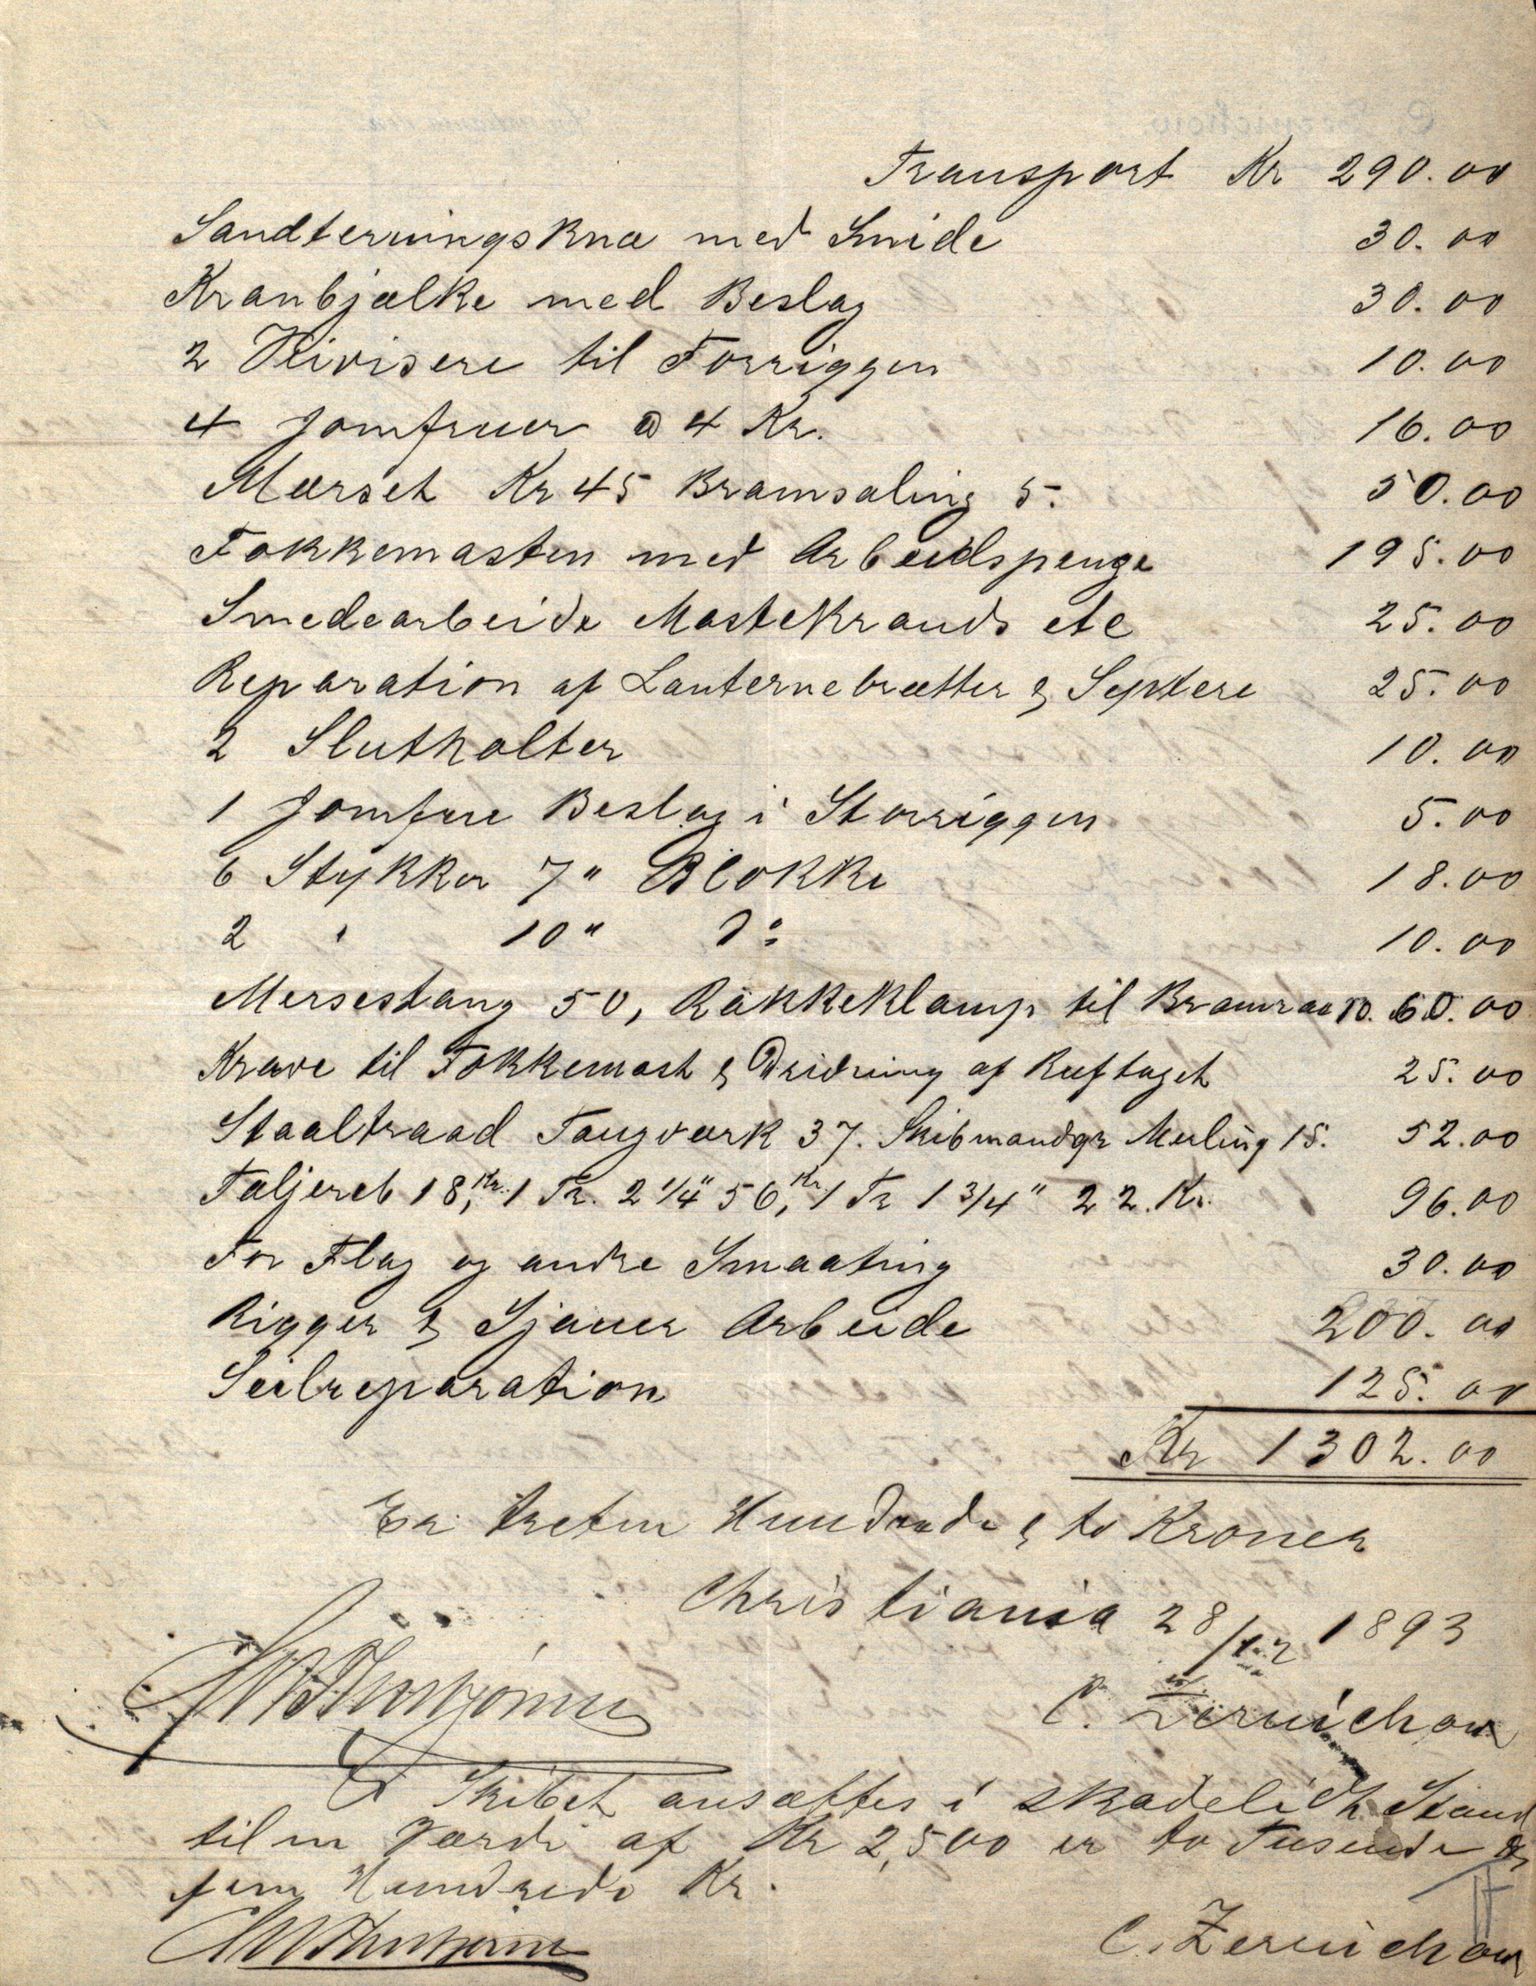 Transport Kr 290.00
Sandterningskna med Smide 30.00
Kranbjælke med Beslag 30.00
2 til Forriggen 10.00
4 Jomfruer a 4 Kr. 16.00
Mærset Kr 45 Bramsaling 5. 50.00
Fokkemasten med Arbeidspenge 195.00
Smedearbeide Mastekrands etc 25.00
Reparation af Lanternebrætter & Septere 25.00
2 Slutholter 10.00
1 Jomfru Beslag i Storriggen 5.00
6 Stykker 7" Blokke 18.00
2 " 10" do 10.00
Mersestang 50, Rakkeklamp til Bramraa 10. 60.00
Krave til Fokkemast & af Ruftaget 25.00
Staaltraad Taugværk 37. Skibmandsgr Merling 15. 52.00
Taljereb 18 Kr., 1 Tr. 2 1/4" 56 Kr., 1 Tr 1 3/4" 22. Kr. 96.00
For Flag og andre Smaating 30.00
Rigger & Sjauer Arbeide 200.00
Seilreparation 125.00
Kr 1302.00
Er tretten Hundrede & to Kroner
Christiania 28/12 1893
C. Zernichow
Skibet ansættes i skadelidt Stand
til en Værdi af Kr 2,500 er to Tusende &
fem Hundrede Kr.
C. Zernichow